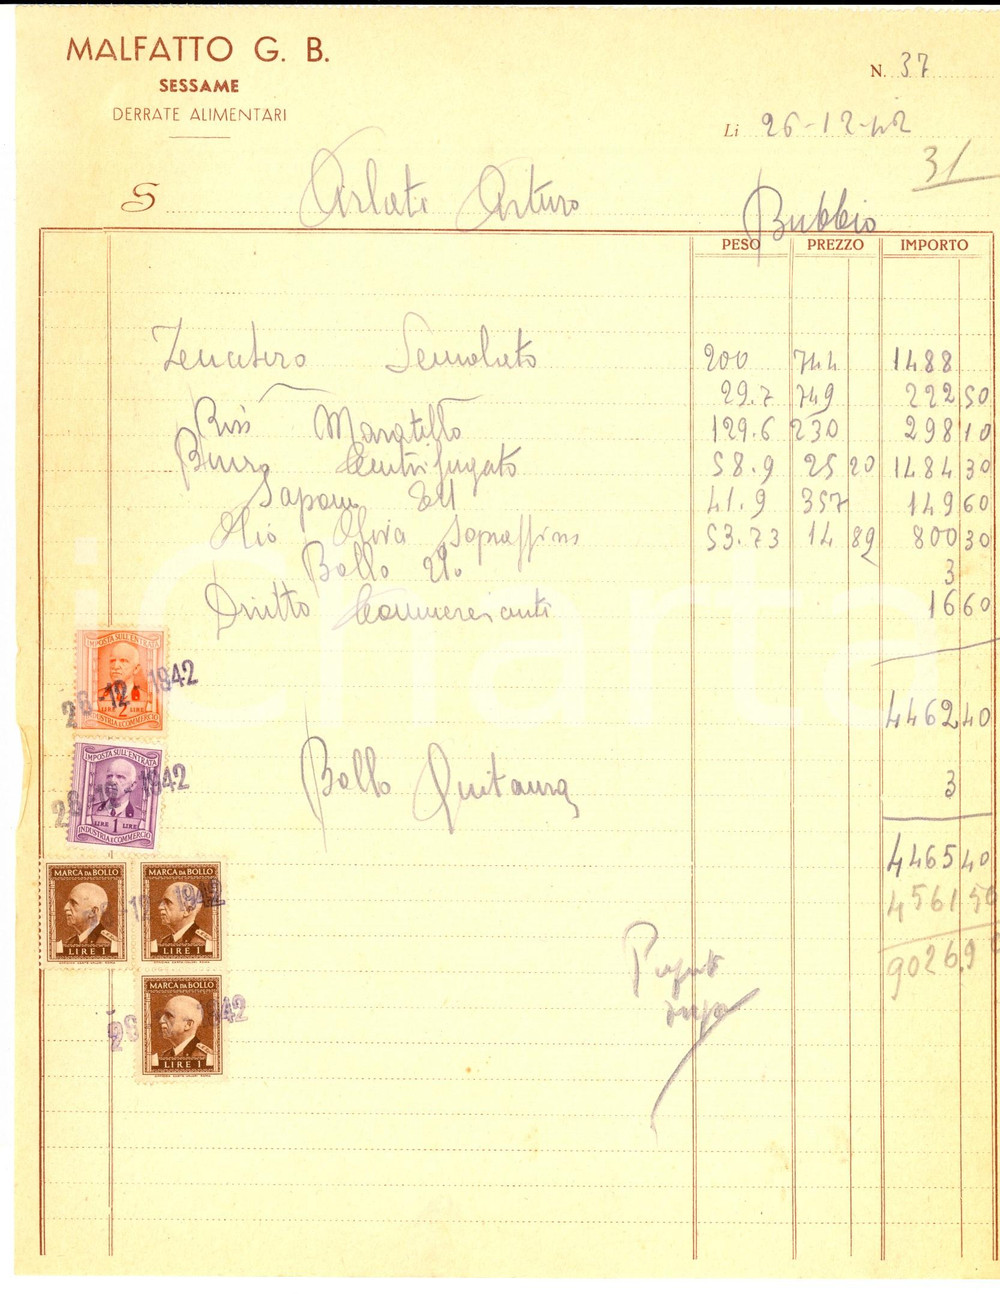 MALFATTO G. B.
SESSAME
DERRATE ALIMENTARI
N. 37
Li 26-12-42
31
S Arlati Arturo
Bubbio
PESO PREZZO IMPORTO
Zucchero Semolato 200 744 1488
29.7 749 222 50
Riso Maratello 129.6 230 298 10
Burro Centrifugato 58.9 25 20 1484 30
Sapone 41.9 357 149 60
Olio Oliva Sopraffino 53.73 14 89 800 30
Bollo 3
Diritto Commercianti 16 60
4462 40
Bollo Quitanza 3
4465 40
4561 50
9026.9
IMPOSTA SULL'ENTRATA
LIRE 2 LIRE
INDUSTRIA E COMMERCIO
28-12-1942
IMPOSTA SULL'ENTRATA
LIRE 1 LIRE
INDUSTRIA E COMMERCIO
28-12-1942
MARCA DA BOLLO
LIRE 1
MARCA DA BOLLO
LIRE 1
MARCA DA BOLLO
LIRE 1
iCharta